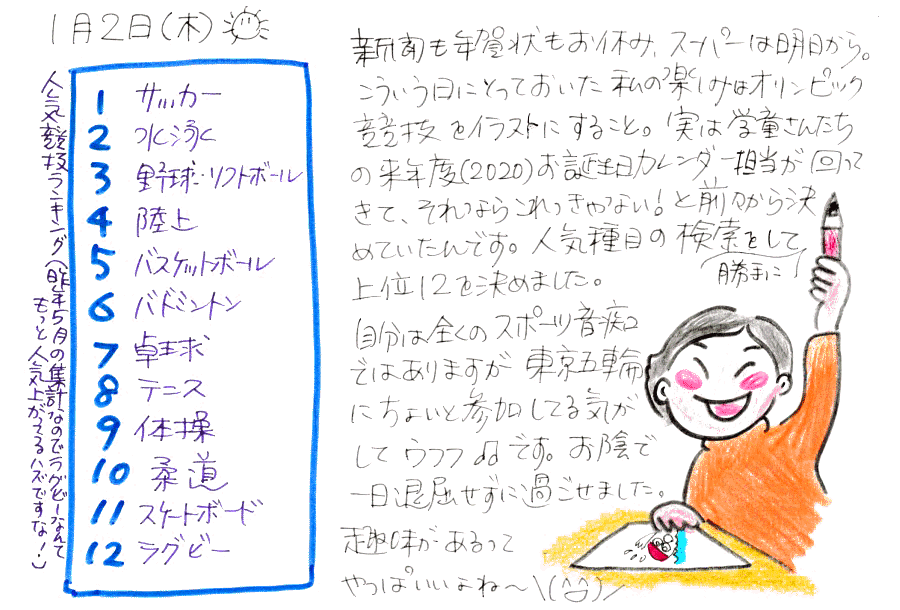 1月2日(木)
人気競技ランキング(昨年5月の集計なのでラグビーなんて
もっと人気上がってるハズですな!)
1 サッカー
2 水泳
3 野球・ソフトボール
4 陸上
5 バスケットボール
6 バドミントン
7 卓球
8 テニス
9 体操
10 柔道
11 スケートボード
12 ラグビー
新聞も年賀状もお休み、スーパーは明日から。
こういう日にとっておいた私の楽しみはオリンピック
競技をイラストにすること。実は学童さんたち
の来年度(2020)お誕生日カレンダー担当が回って
きて、それならこれっきゃない!と前々から決
めていたんです。人気種目の検索をして
勝手に
上位12を決めました。
自分は全くのスポーツ音痴
ではありますが東京五輪
にちょいと参加してる気が
してウフフ♫です。お陰で
一日退屈せずに過ごせました。
趣味があるって
やっぱいいよね〜\(^^)/